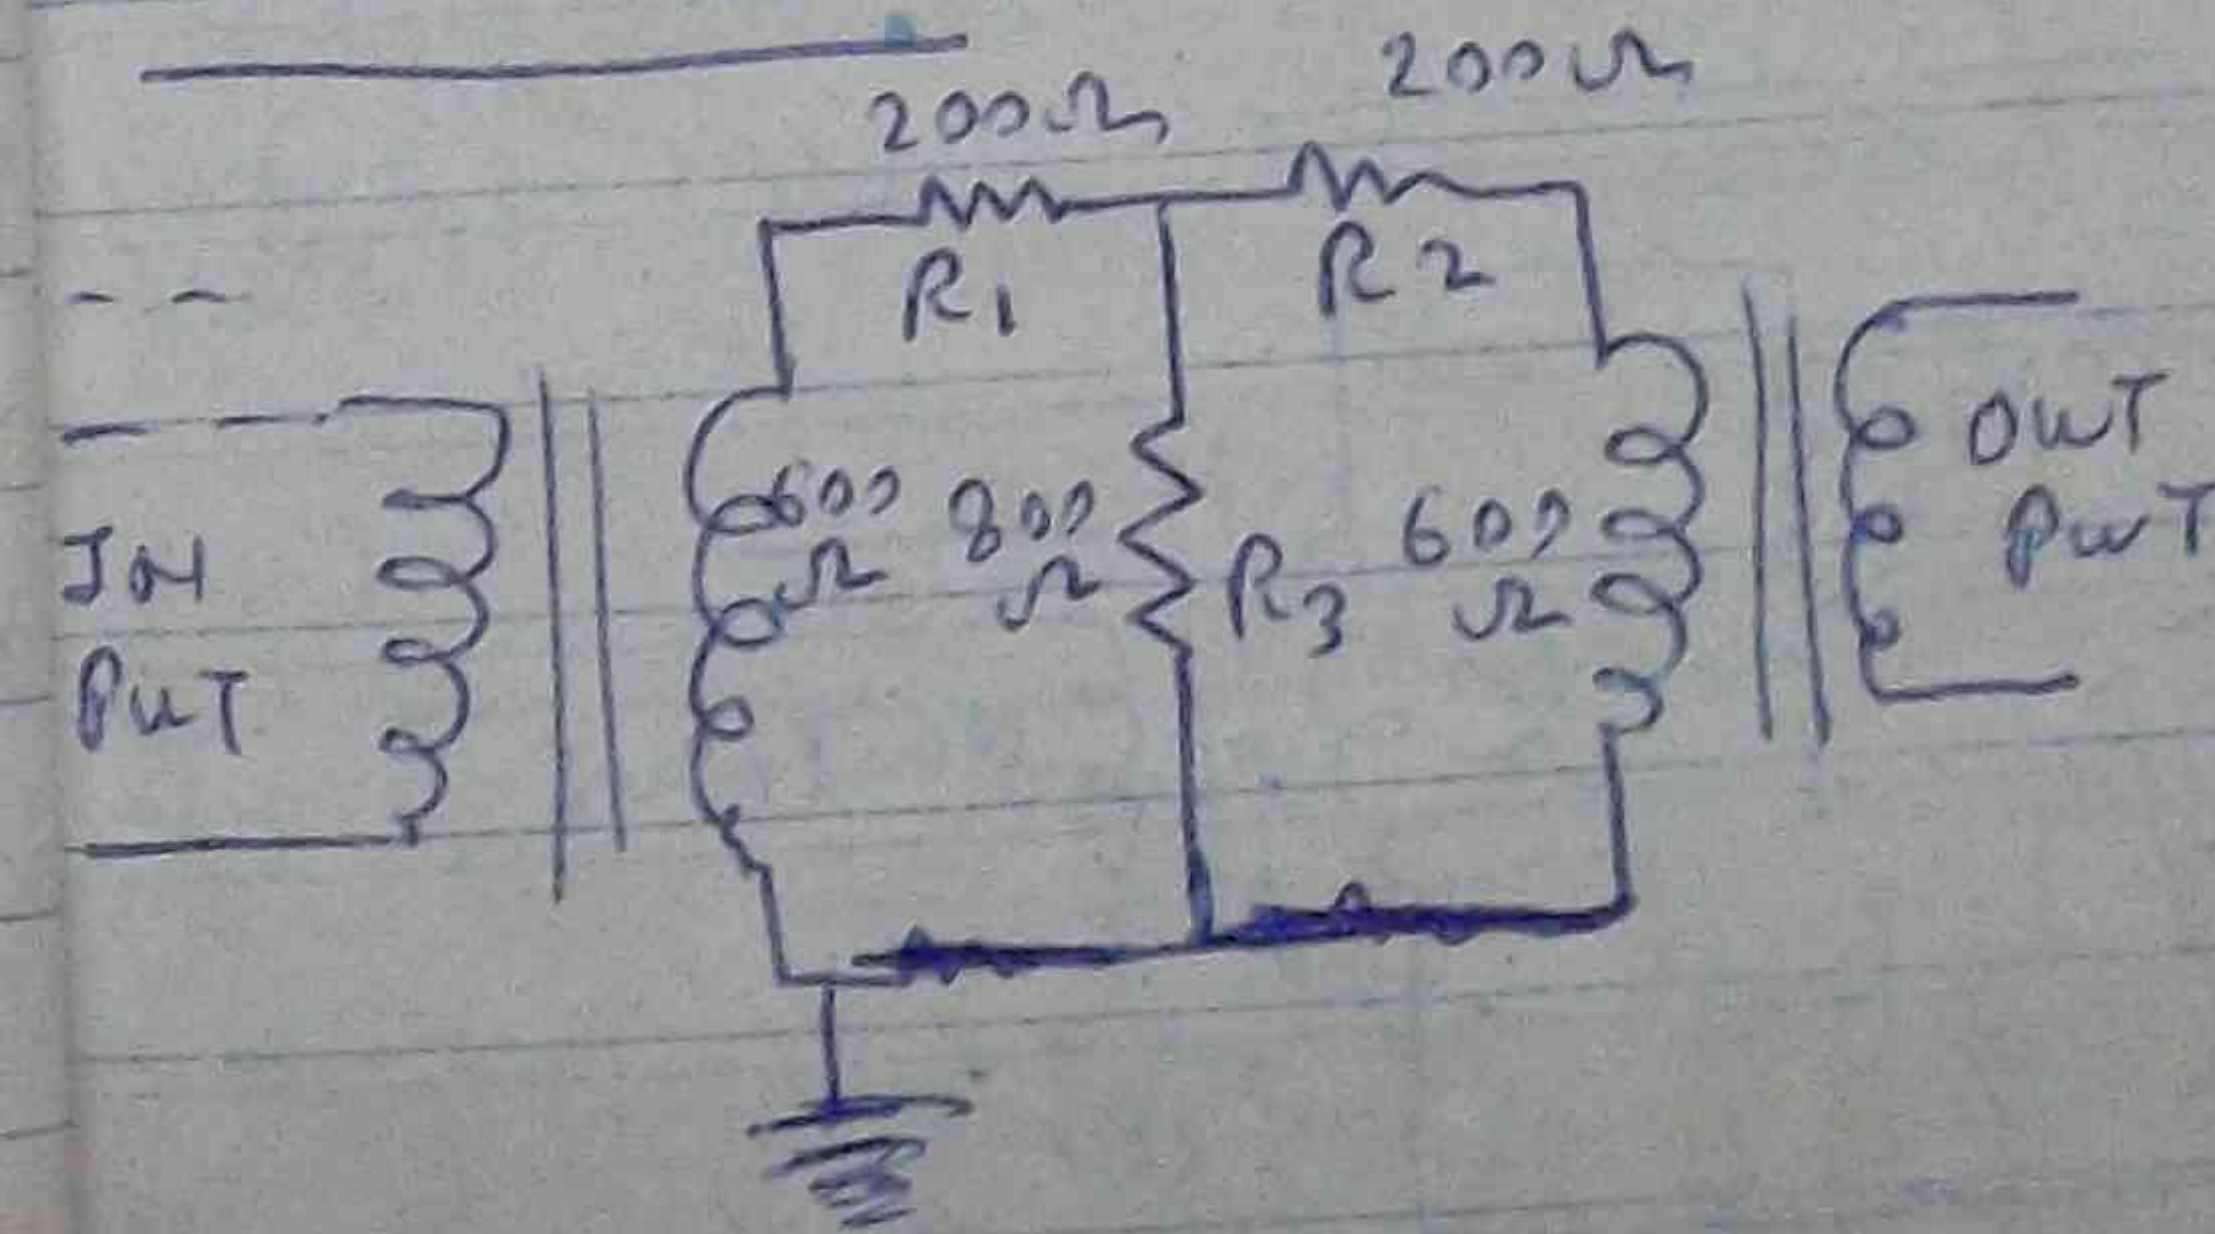 200Ω
200Ω
R1
R2
IN
PUT
600
Ω
800
Ω
R3
600
Ω
OUT
PUT